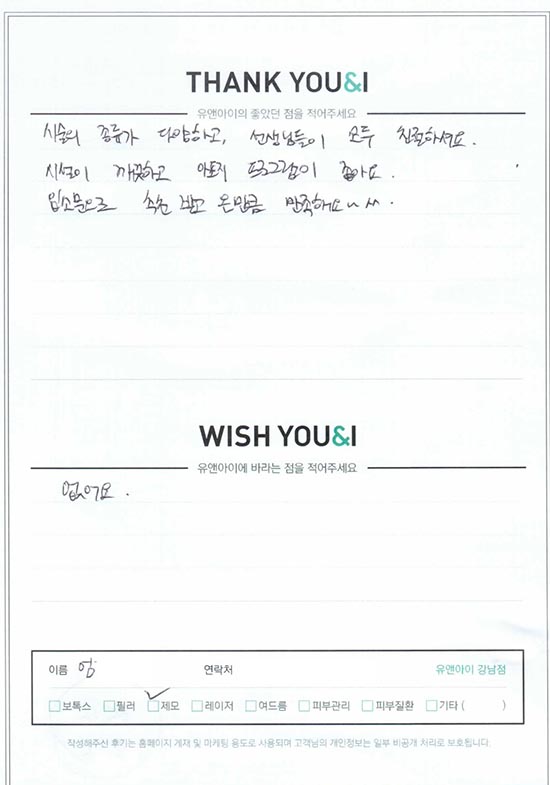 THANK YOU&I
유앤아이의 좋았던 점을 적어주세요
시술의 종류가 다양하고, 선생님들이 모두 친절하셔요.
시설이 깨끗하고 아토지 프로그램이 좋아요.
입소문으로 추천 받고 온만큼 만족해요~^^.
WISH YOU&I
유앤아이에 바라는 점을 적어주세요
없어요.
이름 엄 연락처 유앤아이 강남점
보톡스 필러 제모 레이저 여드름 피부관리 피부질환 기타 ( )
작성해주신 후기는 홈페이지 게재 및 마케팅 용도로 사용되며 고객님의 개인정보는 일부 비공개 처리로 보호됩니다.